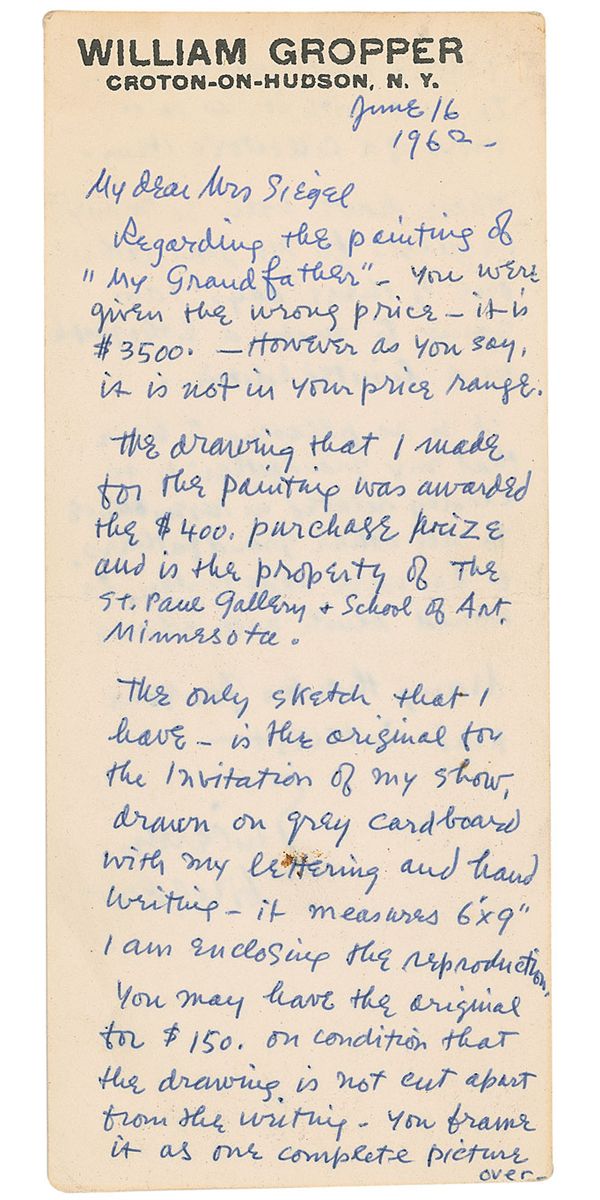 WILLIAM GROPPER
CROTON-ON-HUDSON, N. Y.
June 16
1962 -
My dear Mrs Siegel
Regarding the painting of
"My Grandfather" - You were
given the wrong price - it is
$3500. - However as you say,
it is not in your price range.
The drawing that I made
for the painting was awarded
the $400. purchase prize
and is the property of The
St. Paul Gallery + School of Art,
Minnesota.
The only sketch that I
have - is the original for
the Invitation of my show,
drawn on grey cardboard
with my lettering and hand
writing - it measures 6"x9"
I am enclosing the reproduction.
You may have the original
for $150. on condition that
the drawing is not cut apart
from the writing - You frame
it as one complete picture
over -